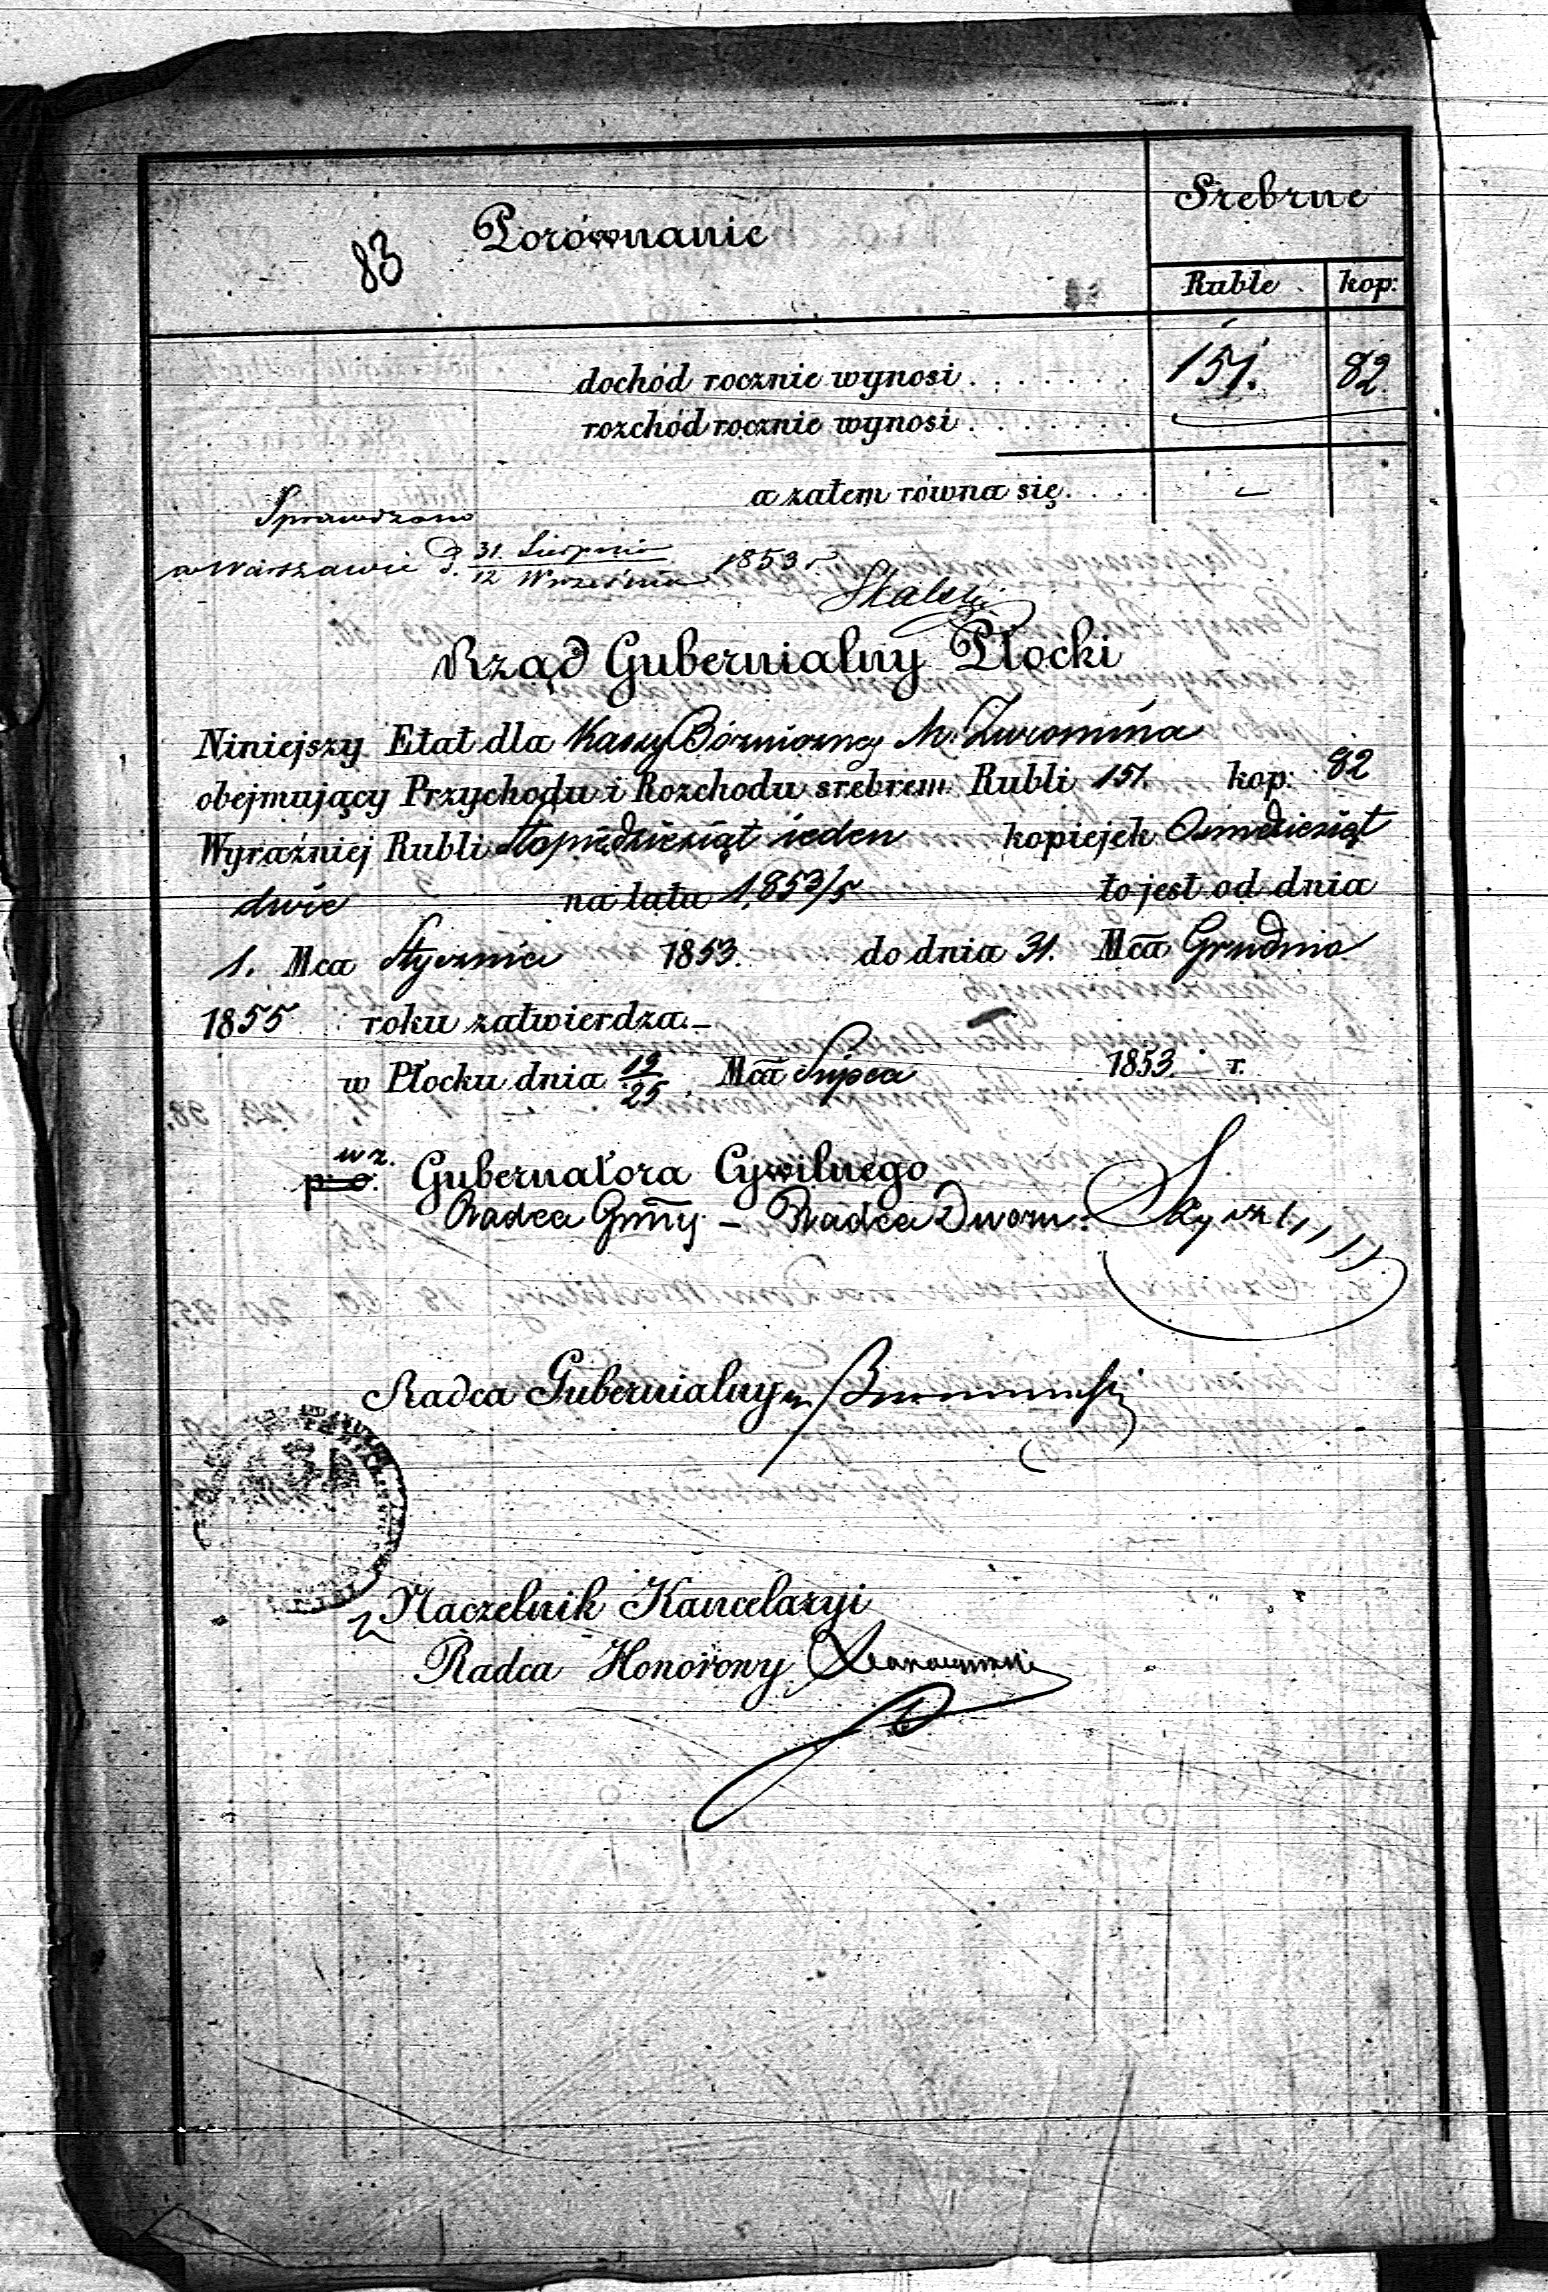 Srebrne
83 Porównanie
Ruble kop:
dochód rocznie wynosi . . . . . . . 151. 82
rozchód rocznie wynosi . . . . . . .
a zatem równa się . . . . –
Sprawdzono
w Warszawie d. 31 Sierpnia / 12 Września 1853 r.
Rząd Gubernialny Płocki
Niniejszy Etat dla Kassy Bóżniczney M. Żuromina
obejmujący Przychodu i Rozchodu srebrem Rubli 151. kop: 82
Wyraźniej Rubli Stopiędziesiąt ieden kopiejek Osmdziesiąt
dwie na lata 1853/5 to jest od dnia
1. Mca Stycznia 1853. do dnia 31. Mca Grudnia
1855 roku zatwierdza.–
w Płocku dnia 19/25 Mca Lipca 1853 r.
wz.
p. o. Gubernatora Cywilnego
Radca Gmy – Radca Dworu
Radca Gubernialny
Naczelnik Kancelaryi
Radca Honorowy